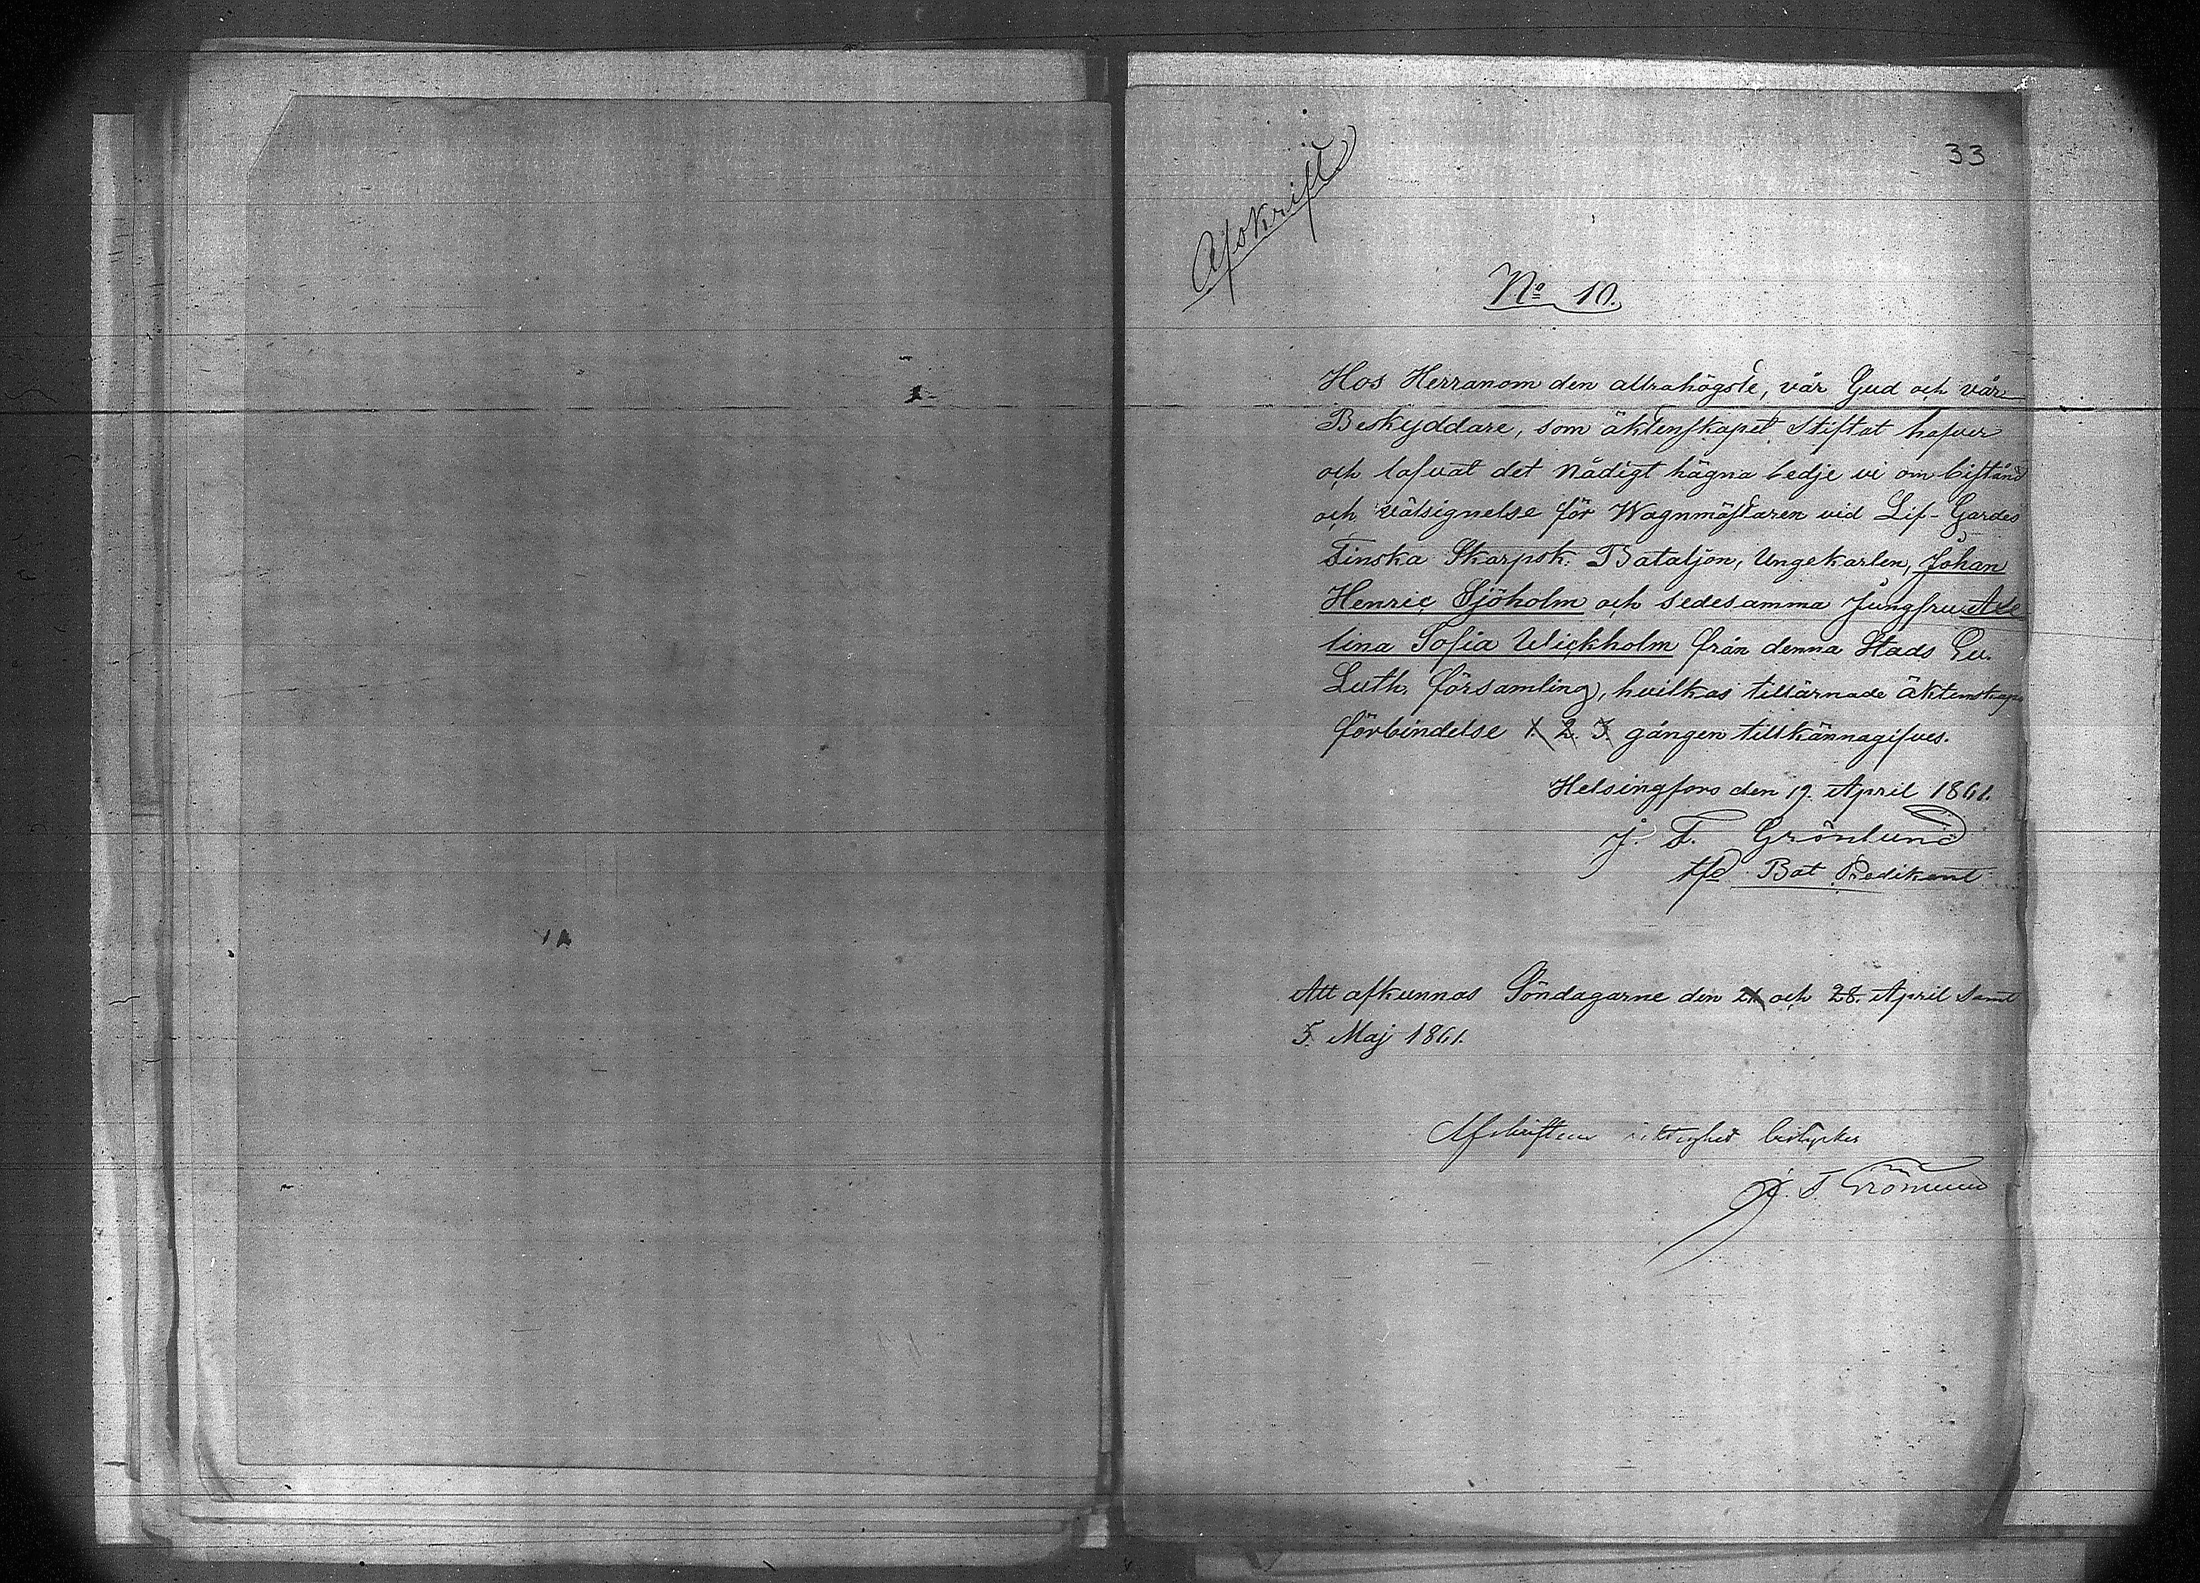 33
Afskrift
No 10.
Hos Herranom den allrahögste, vår Gud och vår
Beskyddare, som äktenskapet stiftat hafver
och lofvat det nådigt hägna bedje vi om bistånd
och välsignelse för Wagnmästaren vid Lif-Gardes
Finska Skarpsk. Bataljon, Ungekarlen, Johan
Henric Sjöholm och sedesamma Jungfru Ade
lina Sofia Wickholm från denna Stads Ev.
Luth. församling, hvilkas tillärnade äktenskaps
förbindelse 1. 2. 3. gången tillkännagifves.
Helsingfors den 19. April 1861.
J. F. Grönlund
tfd Bat Predikant
Att afkunnas Söndagarne den 21 och 28. April samt
5. Maj 1861.
Afskriftens riktighet bestyrker
J. F. Grönlund